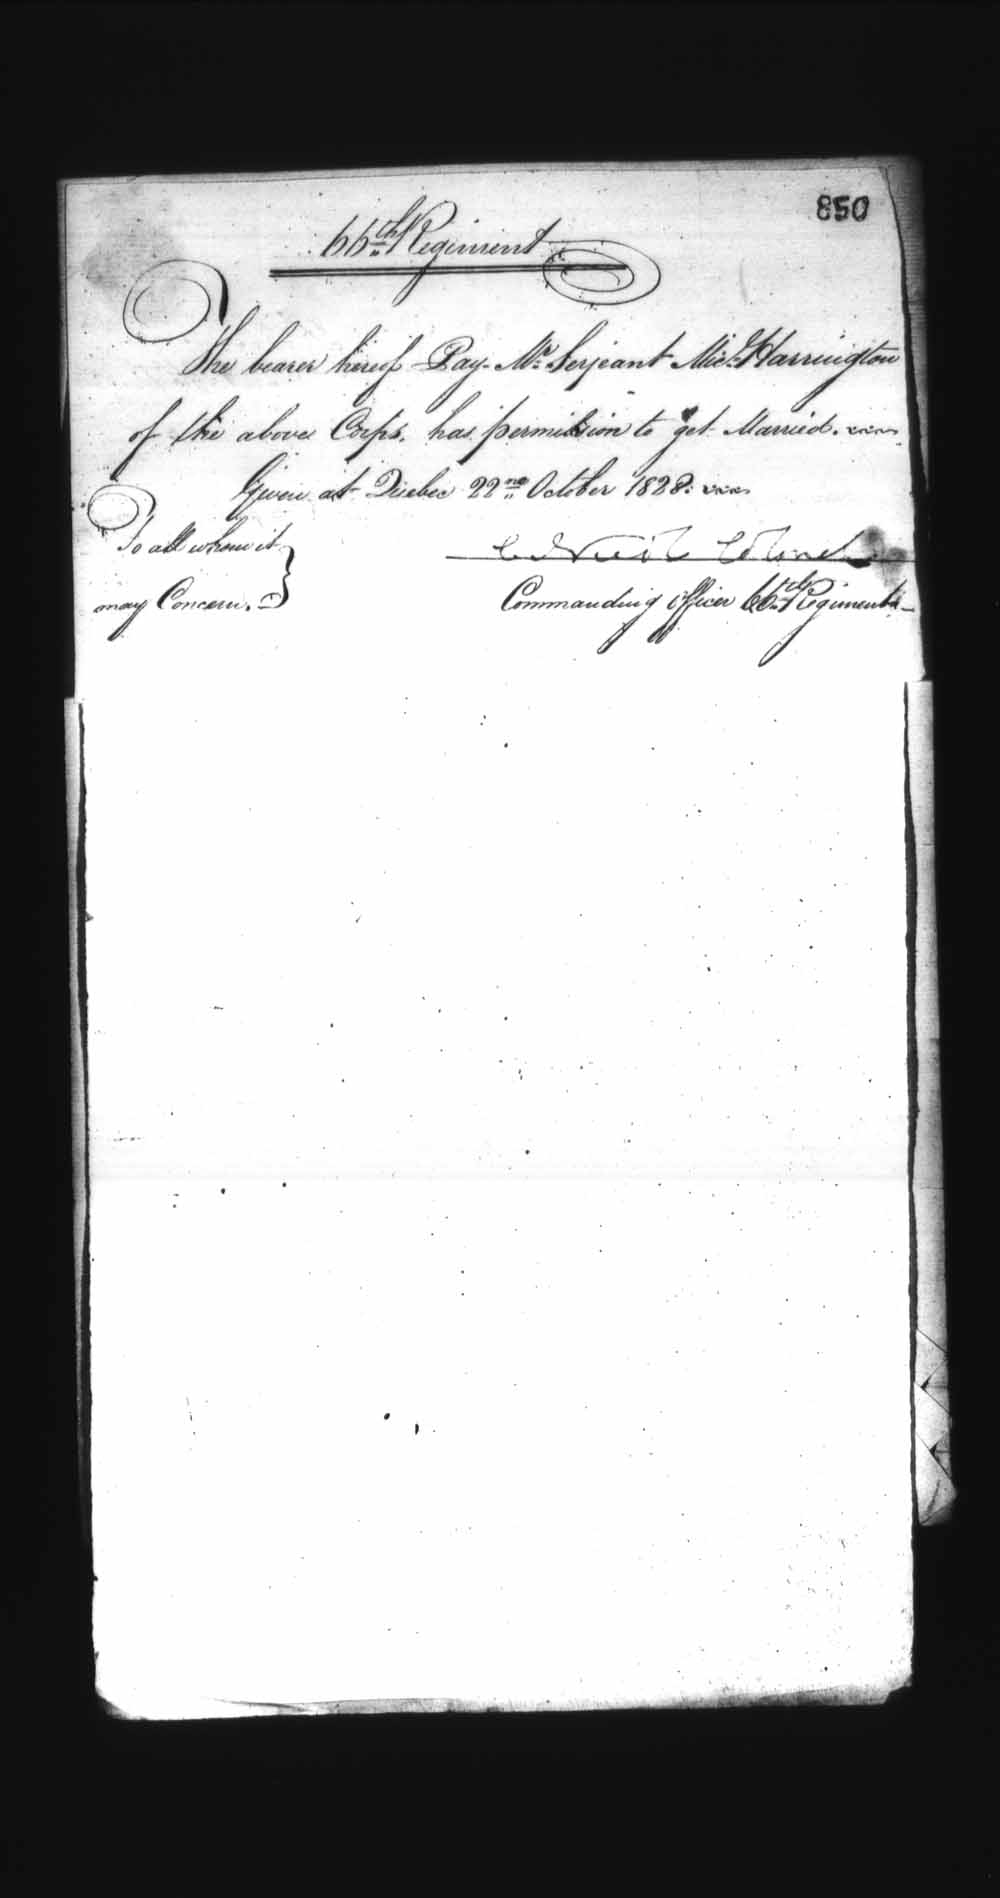 850
66th Regiment
The bearer hereof Pay-Mr Serjeant Micl Harrington
of the above Corps, has permission to get Married.
Given at Quebec 22nd October 1828.
To all whom it
may Concern.
Colonel
Commanding Officer 66th Regiment